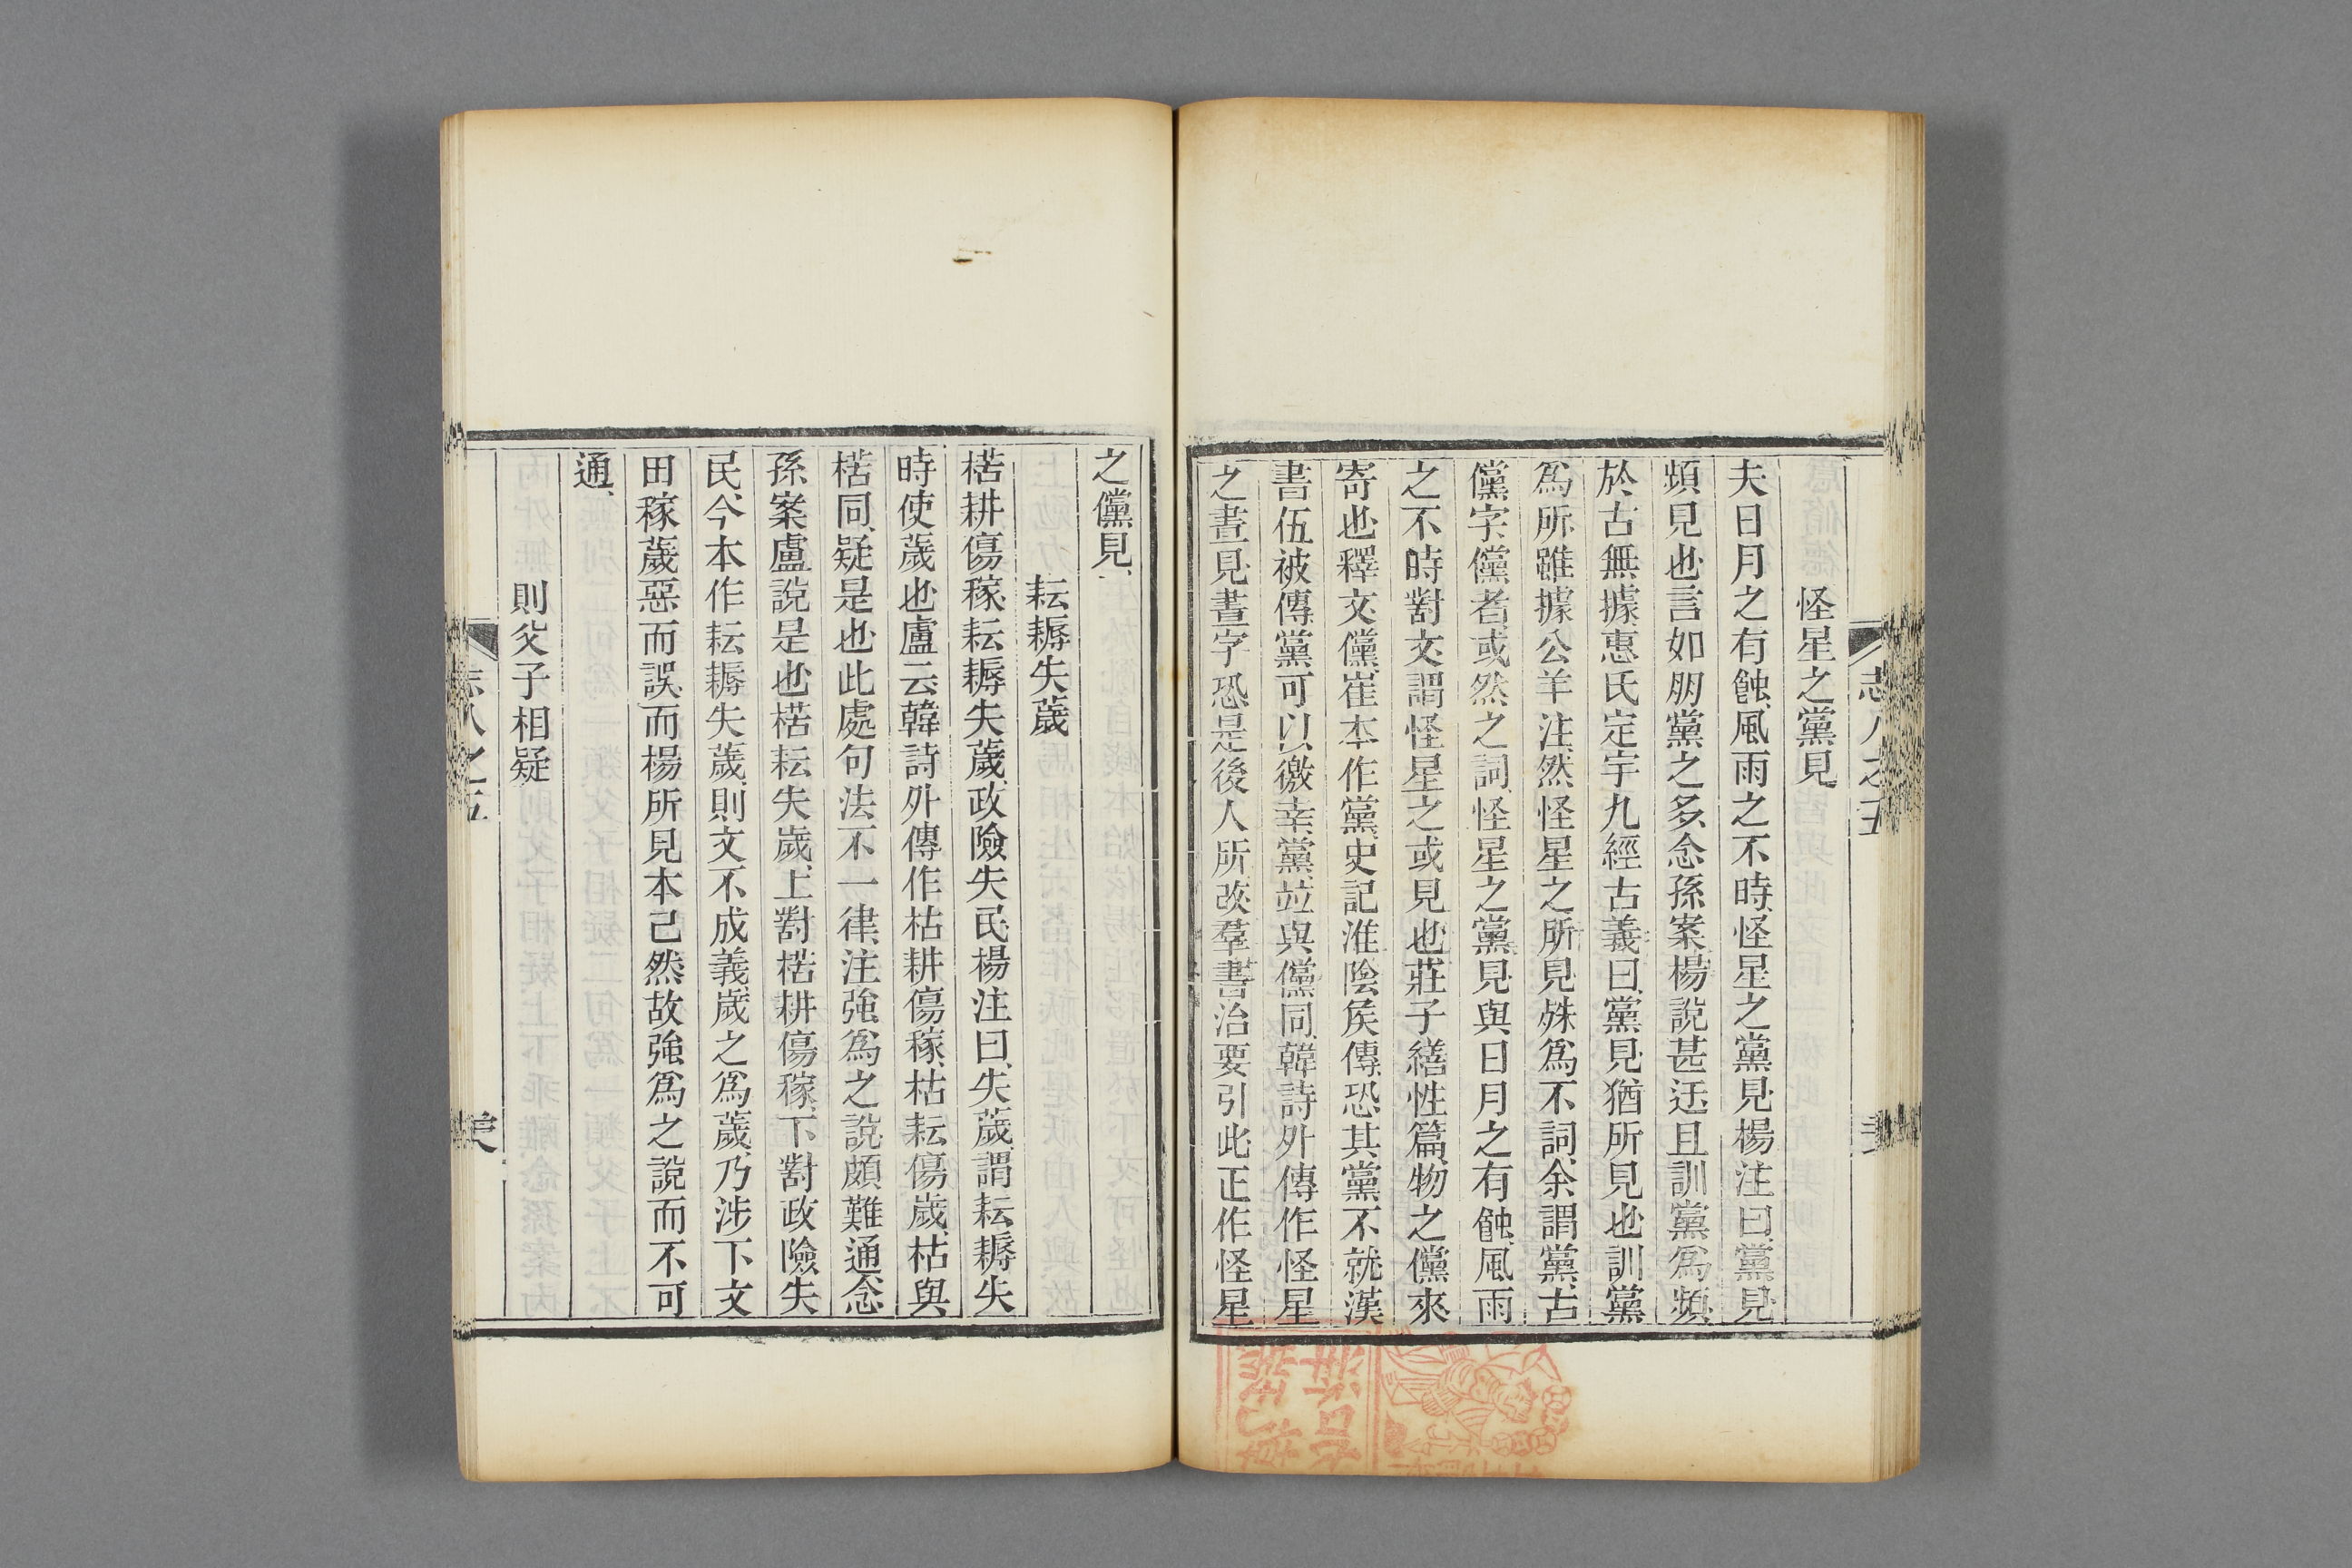 志八之五
怪星之黨見
夫日月之有蝕、風雨之不時、怪星之黨見、楊注曰、黨見、
頻見也、言如朋黨之多、念孫案、楊說甚迂、且訓黨爲頻、
於古無據、惠氏定宇九經古義曰、黨見、猶所見也、訓黨
爲所、雖據公羊注、然怪星之所見、殊爲不詞、余謂黨、古
儻字、儻者、或然之詞、怪星之黨見、與日月之有蝕、風雨
之不時對文、謂怪星之或見也、莊子繕性篇、物之儻來
寄也、釋文、儻、崔本作黨、史記淮陰侯傳、恐其黨不就、漢
書伍被傳、黨可以徼幸、黨竝與儻同、韓詩外傳作怪星
之晝見、晝字恐是後人所改、羣書治要引此正作怪星
之儻見、
耘耨失薉
楛耕傷稼、耘耨失薉、政險失民、楊注曰、失薉、謂耘耨失
時使薉也、盧云、韓詩外傳作枯耕傷稼、枯耘傷歲、枯與
楛同、疑是也、此處句法不一律、注強爲之說、頗難通、念
孫案、盧說是也、楛耘失歲、上對楛耕傷稼、下對政險失
民、今本作耘耨失薉、則文不成義、歲之爲薉、乃涉下文
田稼薉惡而誤、而楊所見本已然、故強爲之說而不可
通、
則父子相疑
志八之五